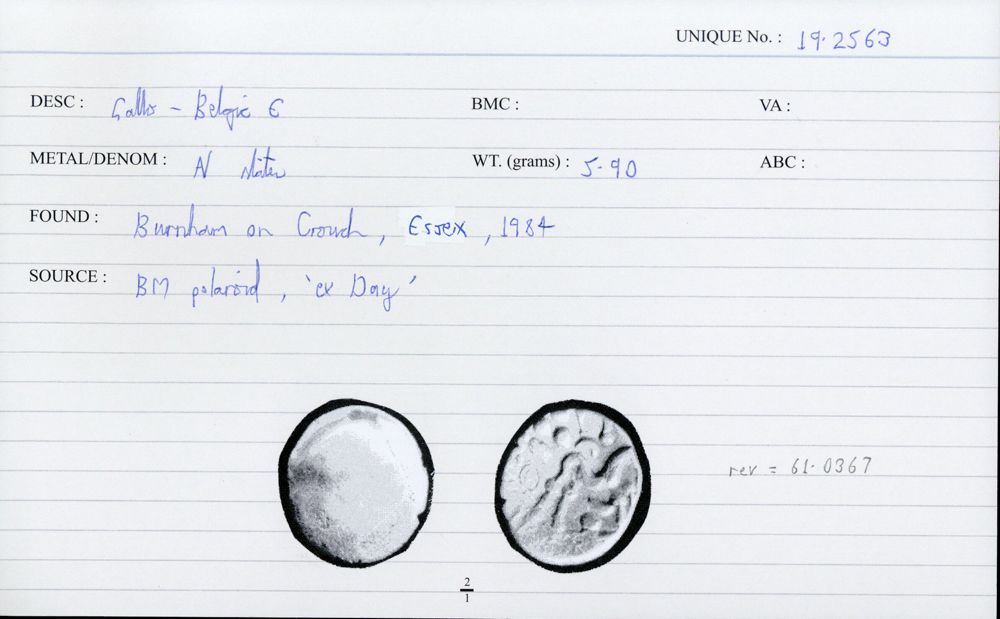 UNIQUE No. : 19.2563
DESC : Gallo-Belgic E BMC : VA :
METAL/DENOM : AV Stater WT. (grams) : 5.90 ABC :
FOUND : Burnham on Crouch, Essex, 1984
SOURCE : BM polaroid, 'ex Day'
rev = 61.0367
2
1